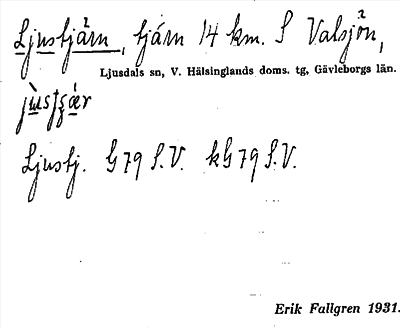 Ljustjärn, tjärn 14 km. S Valsjön,
Ljusdals sn, V. Hälsinglands doms. tg, Gävleborgs län.
Ljustj. G 79 S.V. kG 79 S.V.
Erik Fallgren 1931.